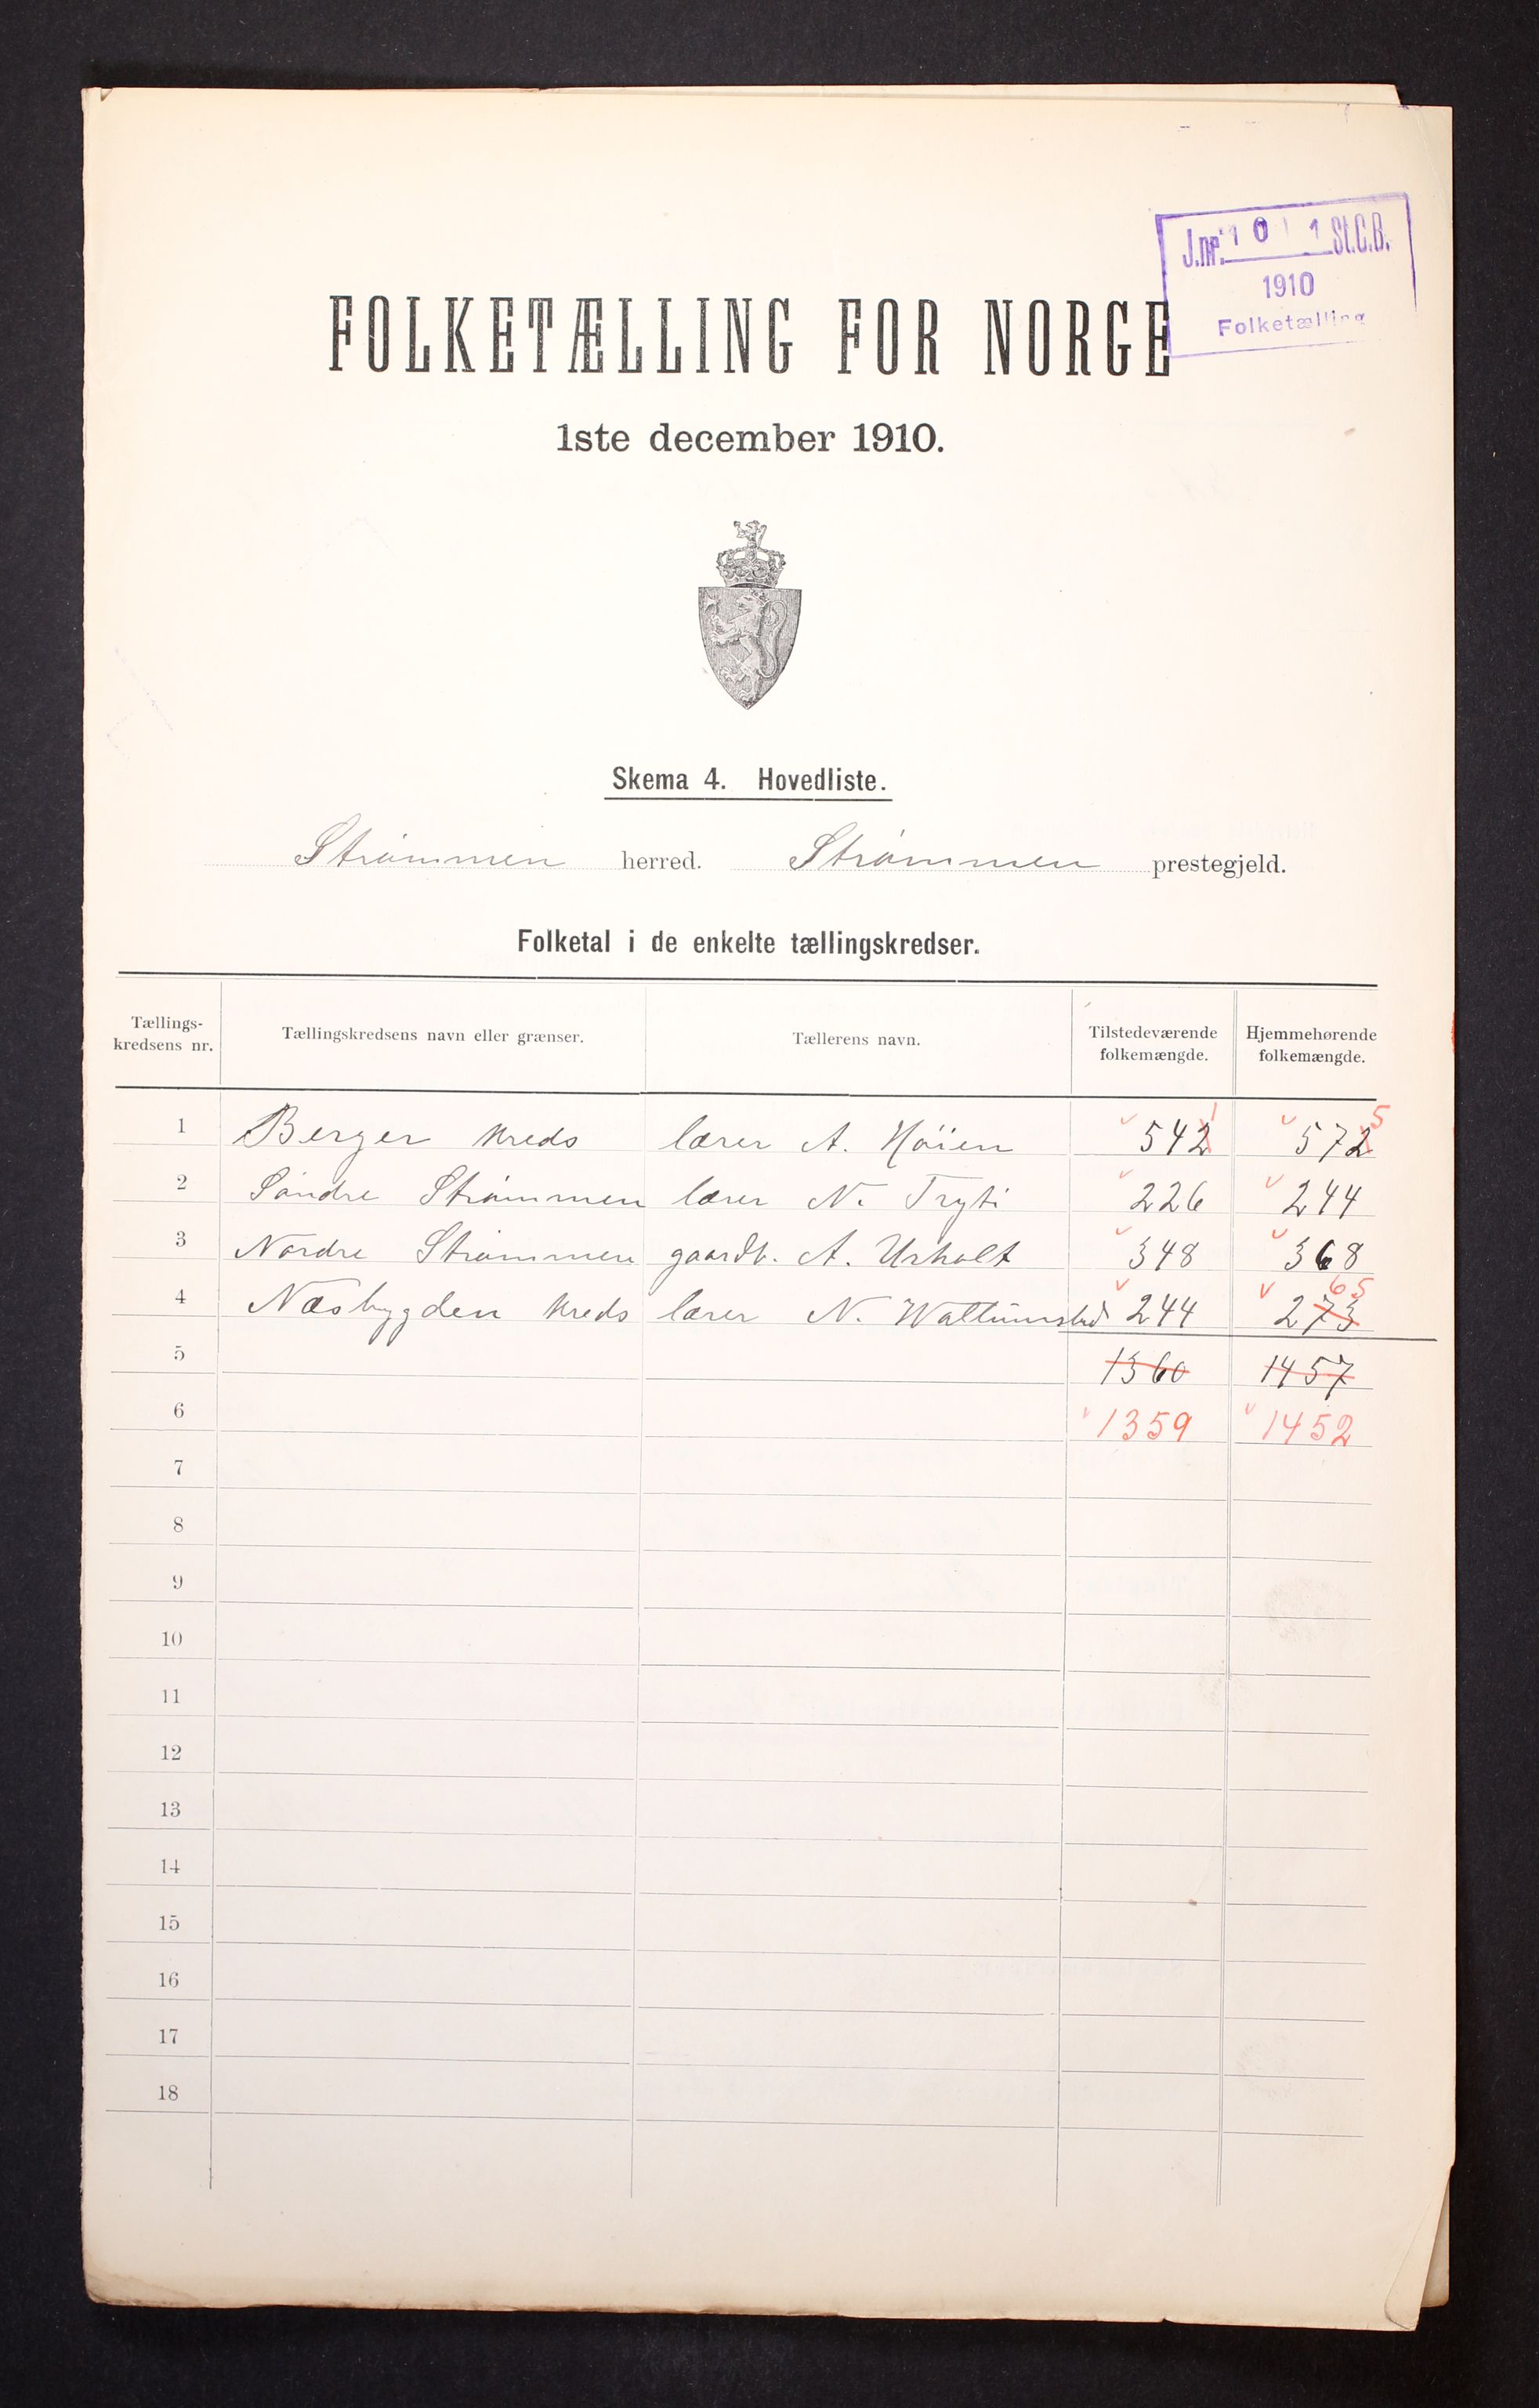 J.nr. 10 1 St.C.B.
1910
Folketælling
FOLKETÆLLING FOR NORGE
1ste december 1910.
Skema 4. Hovedliste.
Strømmen herred. Strømmen prestegjeld.
Folketal i de enkelte tællingskredser.
Tællings-kredsens nr. Tællingskredsens navn eller grænser. Tællerens navn. Tilstedeværende folkemængde. Hjemmehørende folkemængde.
1 Berger kreds lærer A. Höien 542 1 572 5
2 Søndre Strømmen lærer N. Tryti 226 244
3 Nordre Strømmen gaardb. A. Urholt 348 368
4 Næsbygden kreds lærer N. Wattumstad 244 273 65
5 1360 1457
6 1359 1452
7
8
9
10
11
12
13
14
15
16
17
18